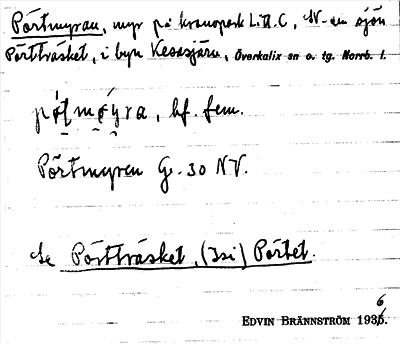 Pörtmyran, myr på kronopark Litt. C, N-om sjön
Pörtträsket, i byn Kesasjärv, Överkalix sn o. tg. Norrb. l.
bf. fem.
Pörtmyren G. 30 NV.
Se Pörtträsket, (Isi) Pörtet.
EDVIN BRÄNNSTRÖM 1936.